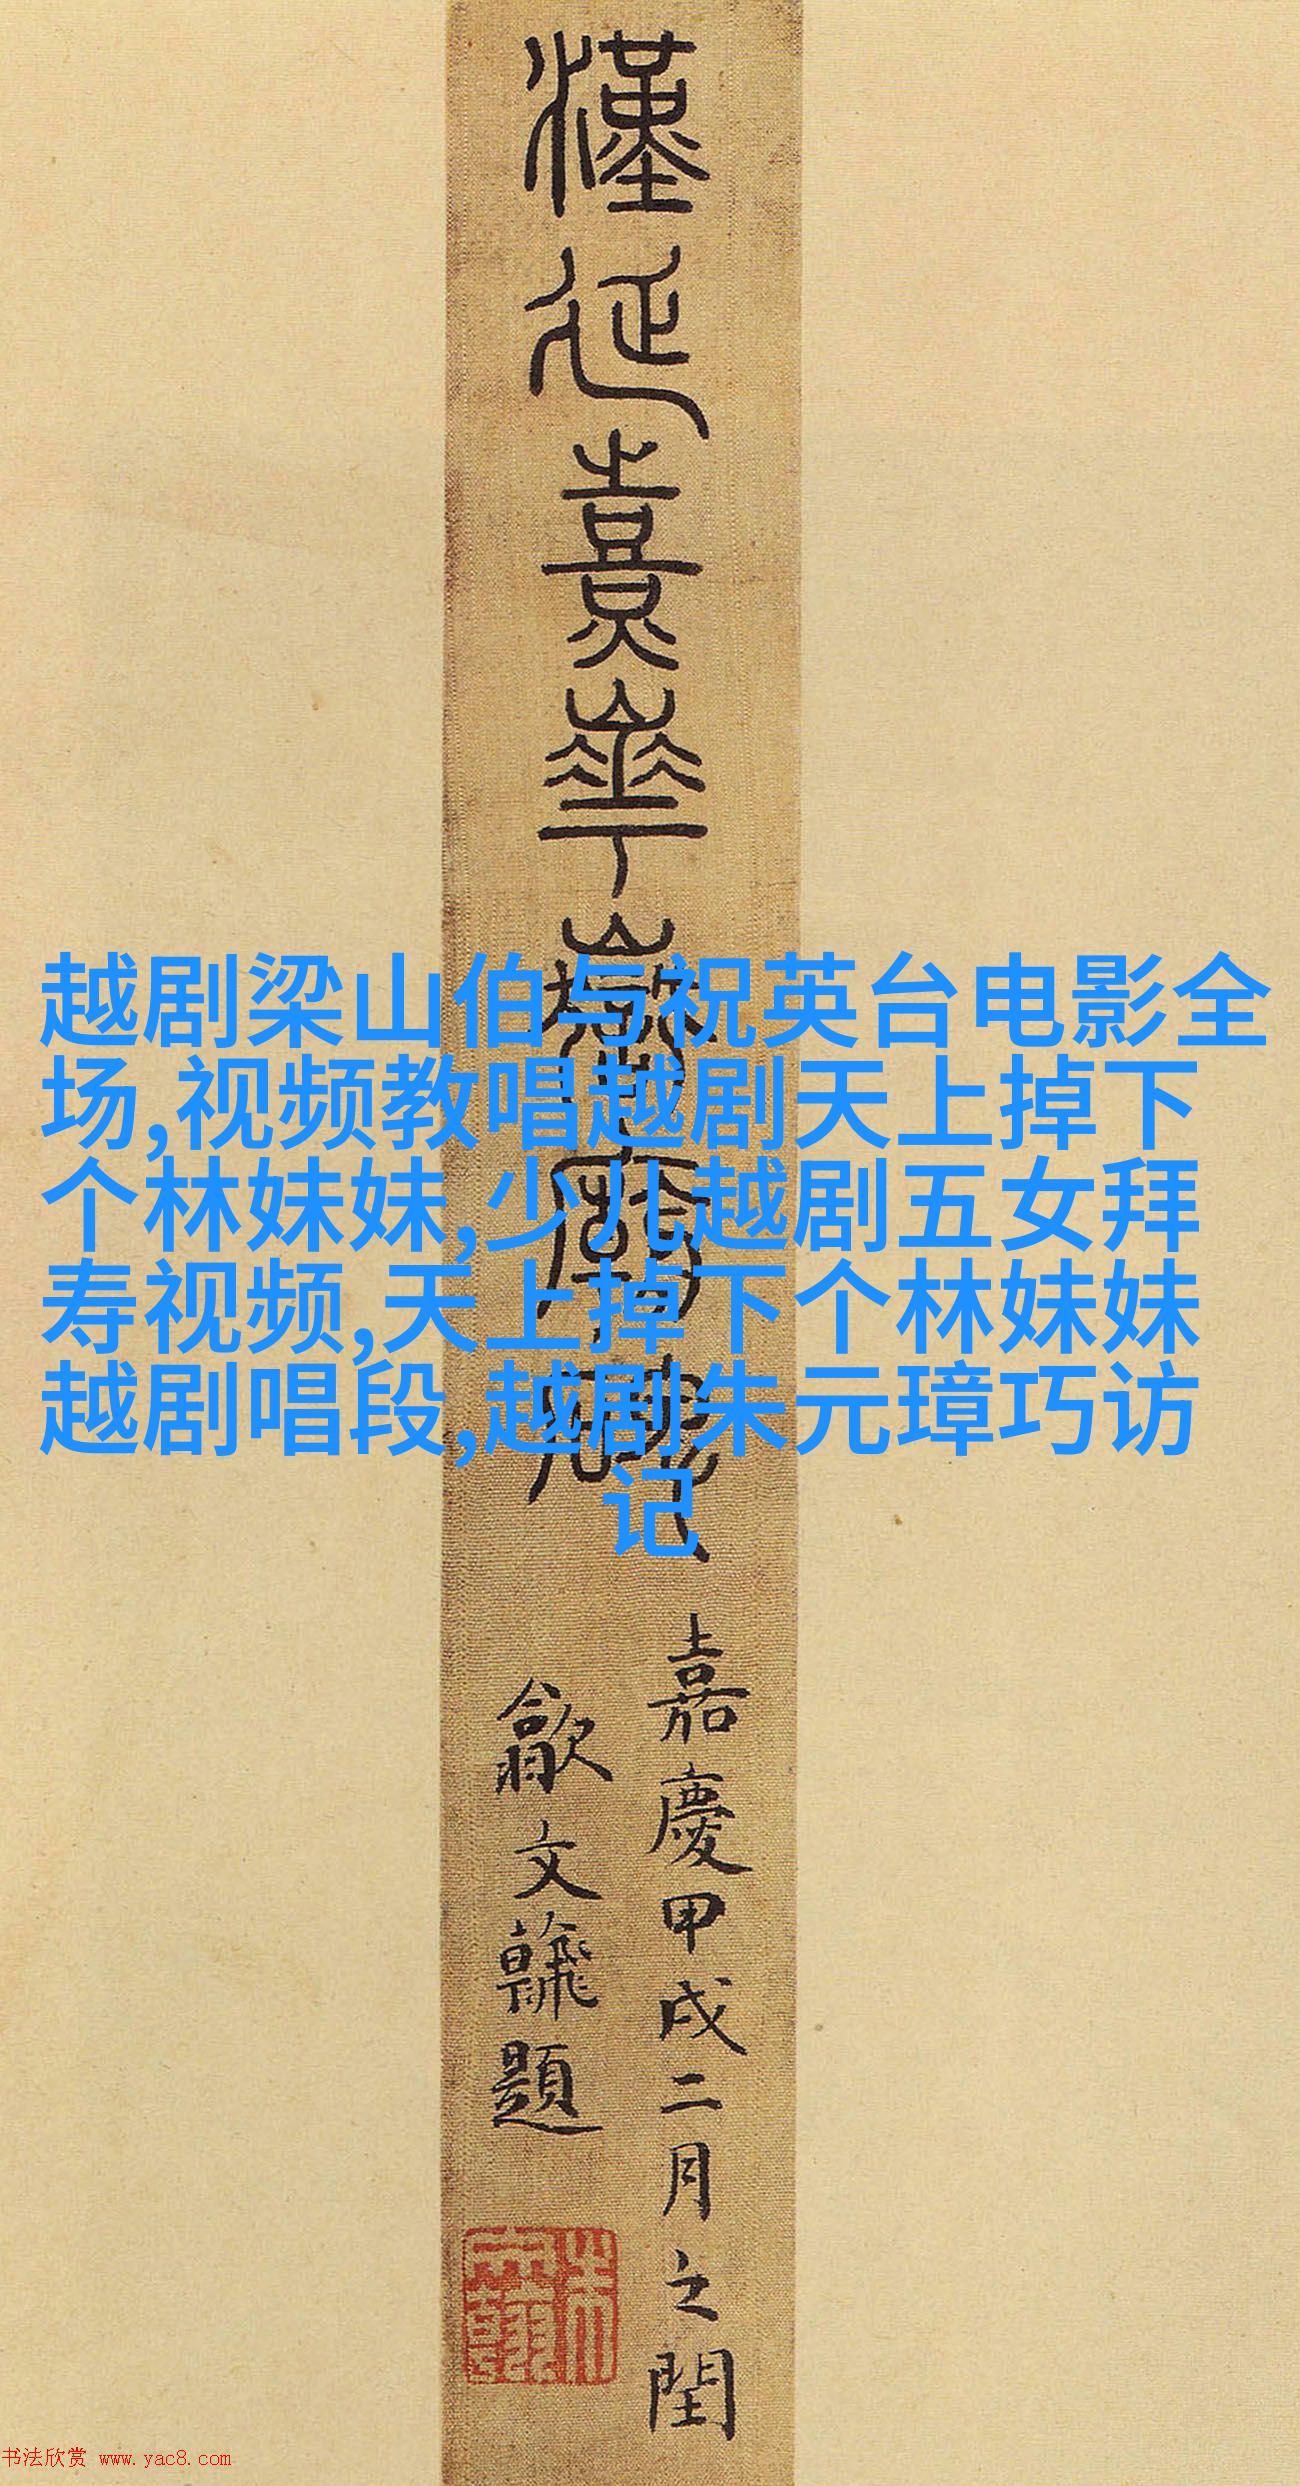 漢延熹華嶽廟碑
越剧梁山伯与祝英台电影全
场,视频教唱越剧天上掉下
个林妹妹,少儿越剧五女拜
寿视频,天上掉下个林妹妹
越剧唱段,越剧朱元璋巧访
记
嘉慶甲戌二月之閏
歙文翰題
书法欣赏 www.yac8.com